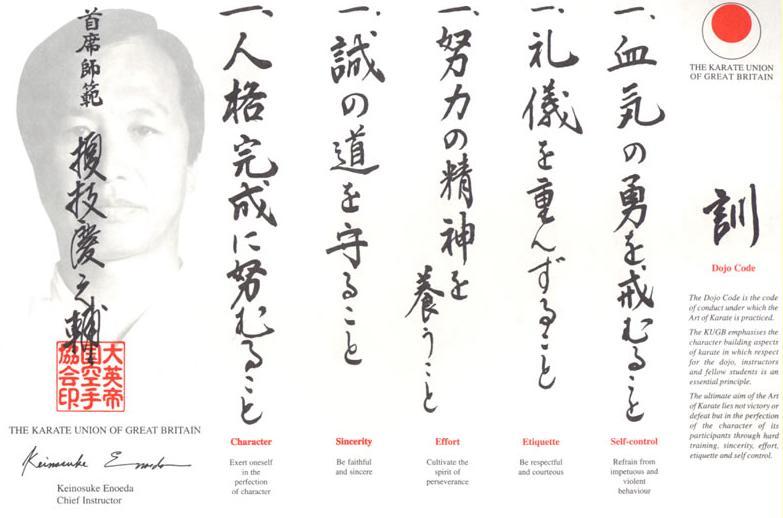 首席師範
榎枝慶之輔
大英帝
国空手
協会印
THE KARATE UNION OF GREAT BRITAIN
Keinosuke Enoeda
Keinosuke Enoeda
Chief Instructor
一、人格完成に努むること
Character
Exert oneself
in the
perfection
of character
一、誠の道を守ること
Sincerity
Be faithful
and sincere
一、努力の精神を
養うこと
Effort
Cultivate the
spirit of
perseverance
一、礼儀を重んずること
Etiquette
Be respectful
and courteous
一、血気の勇を戒むること
Self-control
Refrain from
impetuous and
violent
behaviour
THE KARATE UNION
OF GREAT BRITAIN
訓
Dojo Code
The Dojo Code is the code
of conduct under which the
Art of Karate is practiced.
The KUGB emphasises the
character building aspects
of karate in which respect
for the dojo, instructors
and fellow students is an
essential principle.
The ultimate aim of the Art
of Karate lies not victory or
defeat but in the perfection
of the character of its
participants through hard
training, sincerity, effort,
etiquette and self control.